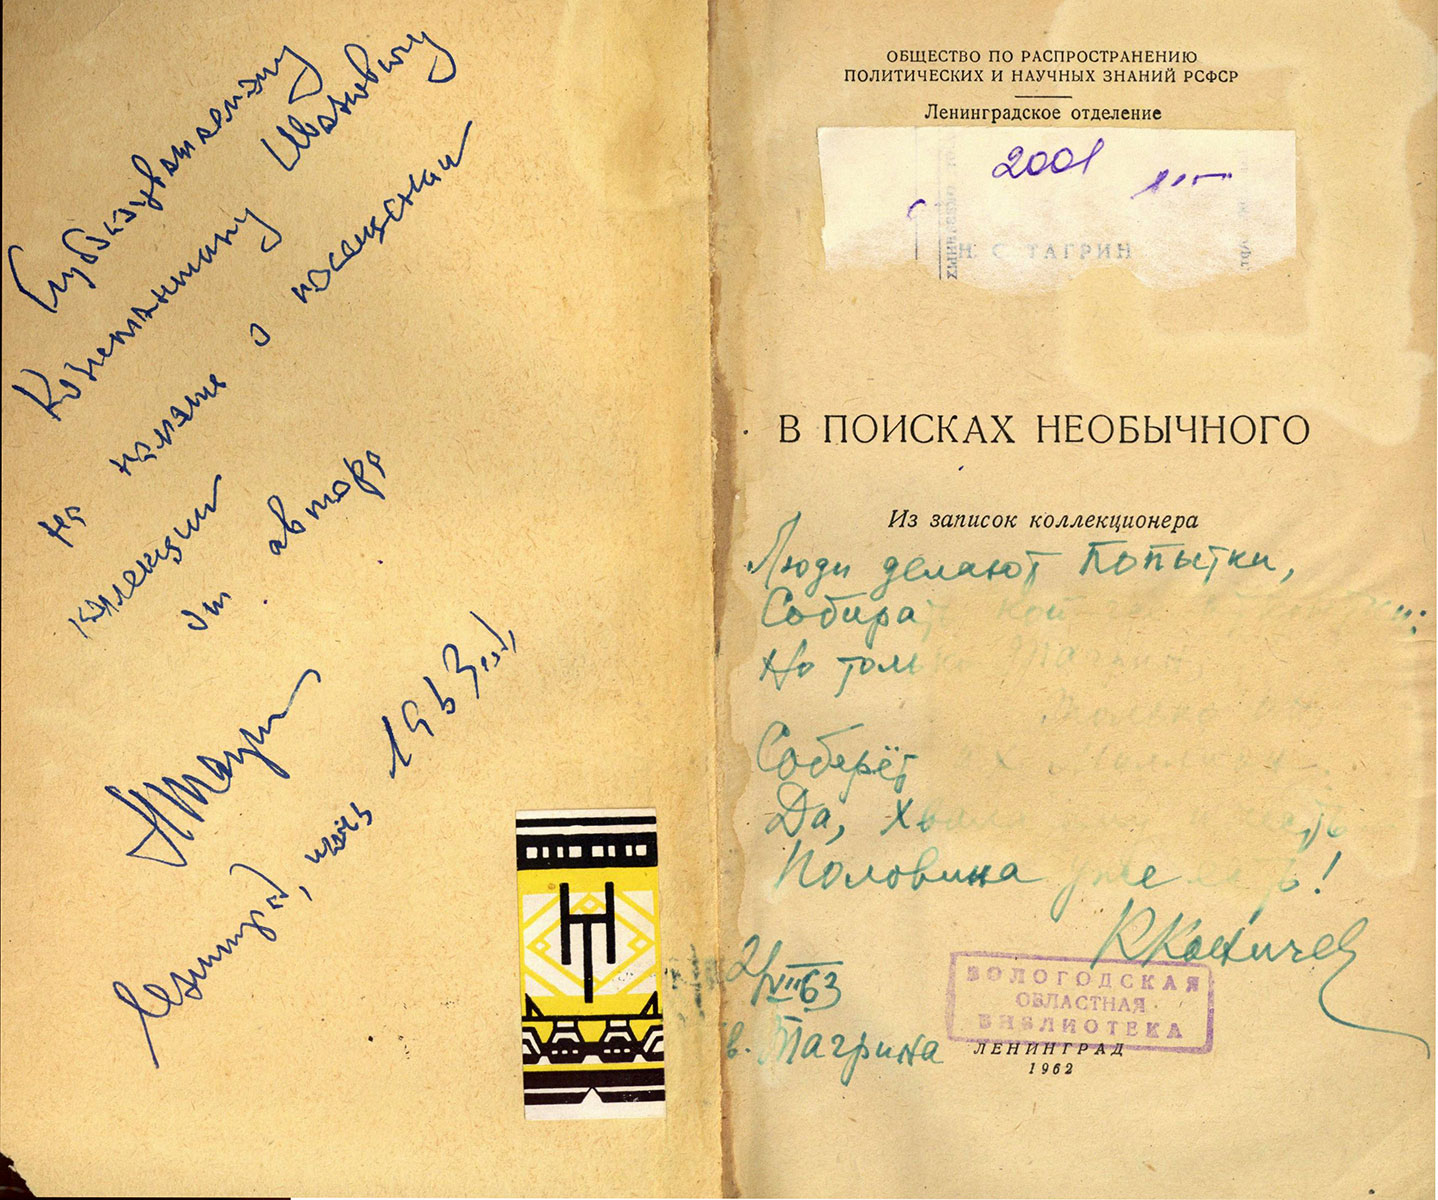 Глубокоуважаемому
Константину Ивановичу
на память о посещении
коллекции
от автора
НТагрин
Ленинград, июль 1963 год,
НТ
ОБЩЕСТВО ПО РАСПРОСТРАНЕНИЮ
ПОЛИТИЧЕСКИХ И НАУЧНЫХ ЗНАНИЙ РСФСР
Ленинградское отделение
2001
Н. С. ТАГРИН
В ПОИСКАХ НЕОБЫЧНОГО
Из записок коллекционера
Люди делают попытки,
Собирают кой чего открытки:
Но только Тагрин
Соберёт их миллион
Да,
Половина уже есть!
ККоничев
2/VIII 63
в. Тагрина
ВОЛОГОДСКАЯ
ОБЛАСТНАЯ
БИБЛИОТЕКА
ЛЕНИНГРАД
1962